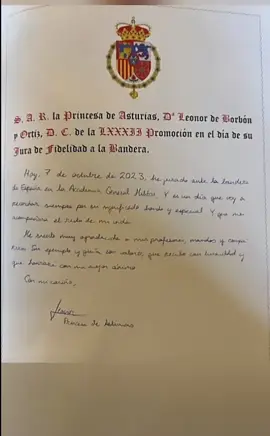 S. A. R. la Princesa de Asturias, Dª Leonor de Borbón
y Ortiz, D. C. de la LXXXII Promoción en el día de su
Jura de Fidelidad a la Bandera.
Hoy, 7 de octubre de 2023, he jurado ante la bandera
de España en la Academia General Militar. Y es un día que voy a
recordar siempre por su significado hondo y especial. Y que me
acompañará el resto de mi vida.
Me siento muy agradecida a mis profesores, mandos y compa
ñeros. Su ejemplo y guía son valores, que recibo con humildad y
que honraré con mi mejor
Con mi cariño,
Leonor
Princesa de Asturias